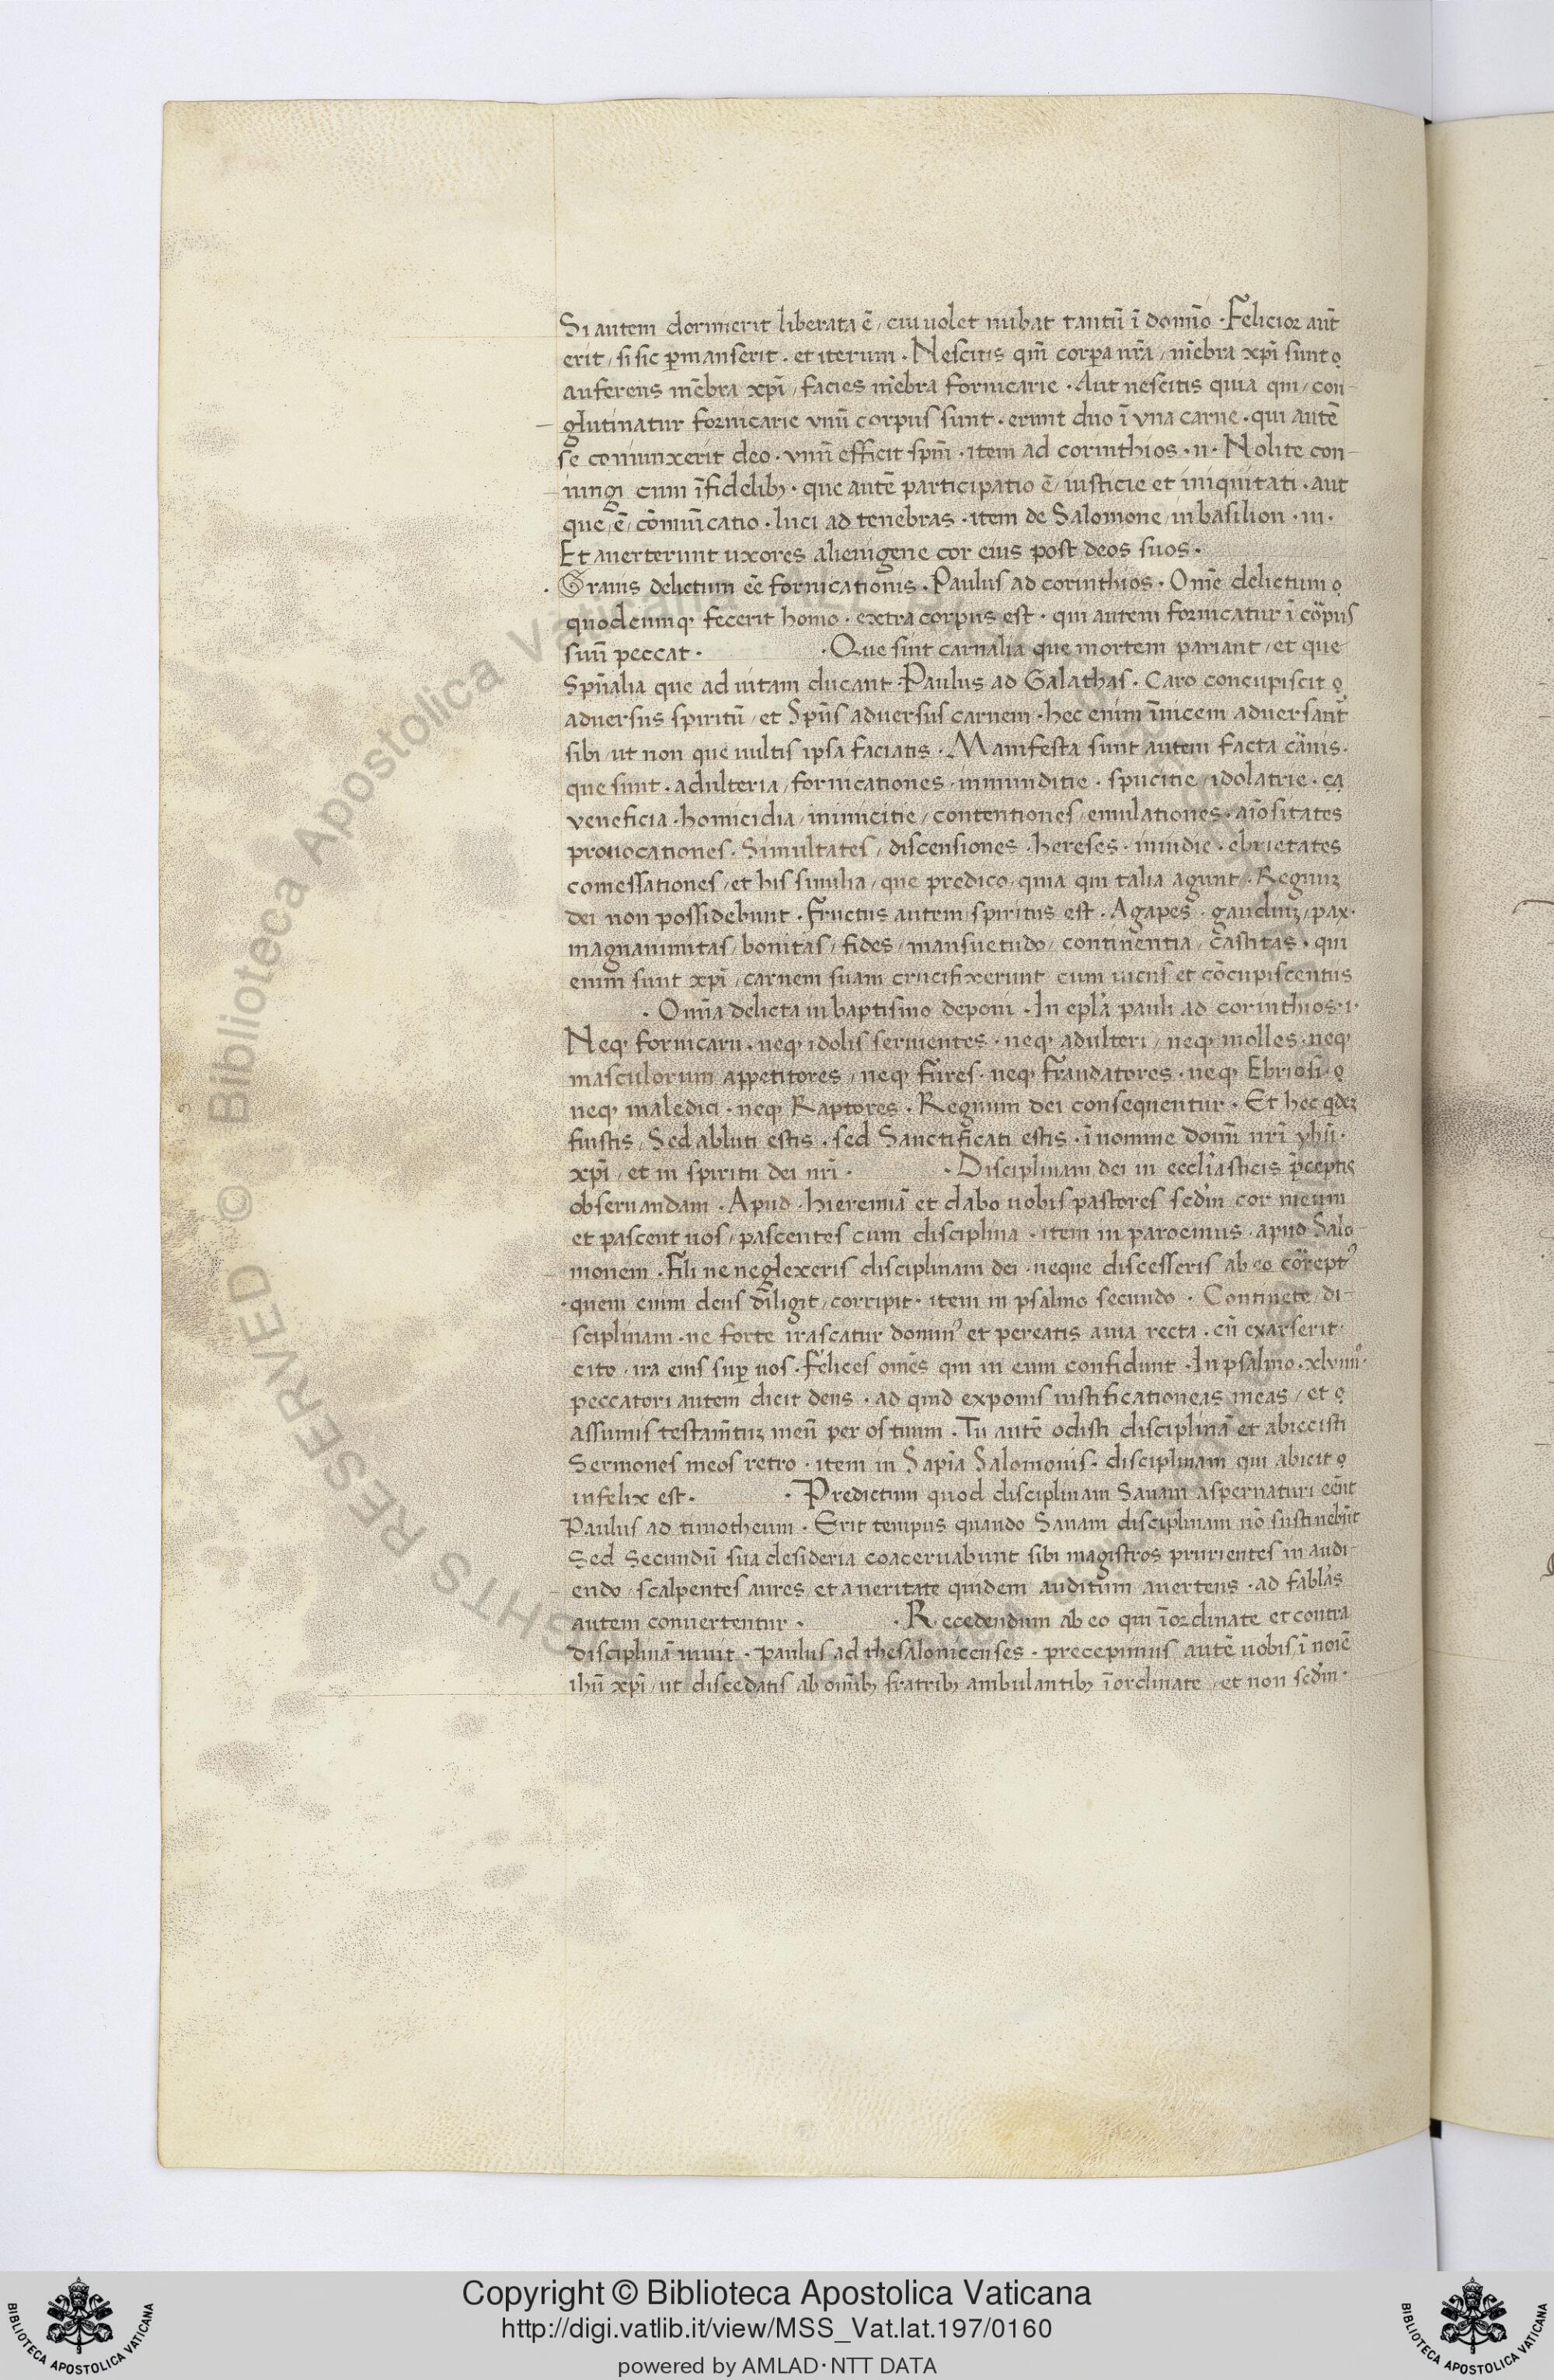 Si autem dormierit liberata ē / cui uolet nubat tantū ī domīo · Felicior aut̄
erit / si sic ꝑmanserit · et iterum · Nescitis qm̄ corpa ur̄a / mēbra xp̄i sunt ọ
auferens mēbra xp̄i / facies mēbra fornicarie · Aut nescitis quia qui / con-
glutinatur fornicarie vnū corpus sunt · erunt duo ī vna carne · qui autē
se coniunxerit deo · vnū efficit spm̄ · item ad corinthios · ii · Nolite con-
iungi cum īfidelibꝫ · que autē participatio ē / iusticie et iniquitati · aut
que / ē / cōmuīcatio · luci ad tenebras · item de Salomone in basilion · iii ·
Et auerterunt uxores alienigene cor eius post deos suos ·
· Grauis delictum eē fornicationis · Paulus ad corinthios · Om̄e delictum ọ
quodcumqꝫ fecerit homo · extra corpus est · qui autem fornicatur ī cor̄pus
suū peccat · · Que sint carnalia que mortem pariant / et que
Spūalia que ad uitam ducant · Paulus ad Galathas · Caro concupiscit ọ
aduersus spiritū / et Spūs aduersus carnem · hec enim īuicem aduersant̄
sibi / ut non que uultis ipsa faciatis · Manifesta sunt autem facta car̄nis ·
que sunt · adulteria / fornicationes · inmunditie · spucitie / idolatrie · cạ
veneficia · homicidia / inimicitie / contentiones / emulationes · aīositates
prouocationes · Simultates / discensiones · hereses · inuidie · ebrietates
comessationes / et his similia / que predico · quia qui talia agunt / · Regnuꝫ
dei non possidebunt · Fructus autem spiritus est · Agapes · gaudiuꝫ / pax ·
magnanimitas / bonitas / fides / mansuetudo / continentia / castitas · qui
enim sunt xp̄i / carnem suam crucifixerunt cum uiciis et cōcupiscentiis
· Om̄ia delicta in baptismo deponi · In epl̄a pauli ad corinthios · i ·
Neqꝫ fornicarii · neqꝫ idolis seruientes · neqꝫ adulteri / neqꝫ molles · neqꝫ
masculorum appetitores / neqꝫ fures · neqꝫ fraudatores · neqꝫ Ebriosi · ọ
neqꝫ maledici · neqꝫ Raptores · Regnum dei consequentur · Et hec qdeꝫ
fuistis / Sed abluti estis · sed Sanctificati estis · ī nomine domī nrī yhū ·
xp̄i / et in spiritu dei nrī · · Disciplinam dei in eccl̄iasticis p̄ceptis
obseruandam · Apud · hieremiā et dabo uobis pastores sed̄m cor meum
et pascent uos / pascentes cum disciplina · item in paroemiis · apud Salo-
monem · Fili ne neglexeris disciplinam dei · neque discesseris ab eo cor̄reptꝰ
· quem enim deus diligit / corripit · item in psalmo secundo · Continete / di-
sciplinam · ne forte irascatur dominꝰ et pereatis a uia recta · cū exarserit ·
cito · ira eius suꝑ uos · Felices om̄es qui in eum confidunt · In psalmo · xlviiiiº ·
peccatori autem dicit deus · ad quid exponis iustificationeas meas / et ọ
assumis testam̄tuꝫ meū per os tuum · Tu autē odisti disciplinā et abiecisti
Sermones meos retro · item in Sapīa Salomonis · disciplinam qui abicit ọ
infelix est · · Predictum quod disciplinam Sanam aspernaturi eēnt
Paulus ad timotheum · Erit tempus quando Sanam disciplinam nō sustinebūt
Sed Secundū sua desideria coaceruabunt sibi magistros prurientes in audi-
endo / scalpentes aures et a ueritate quidem auditum auertens · ad fabl̄as
autem conuertentur · · Recedendum ab eo qui īordinate et contra
disciplinā uiuit · paulus ad thesalonicenses · precepimus autē uobis / ī noīē
ihū xp̄i / ut discedatis ab om̄ibꝫ fratribꝫ ambulantibꝫ īordinate / et non sed̄m ·
© Biblioteca Apostolica Vaticana
RIGHTS RESERVED
Copyright © Biblioteca Apostolica Vaticana
http://digi.vatlib.it/view/MSS_Vat.lat.197/0160
powered by AMLAD·NTT DATA
BIBLIOTECA APOSTOLICA VATICANA
BIBLIOTECA APOSTOLICA VATICANA